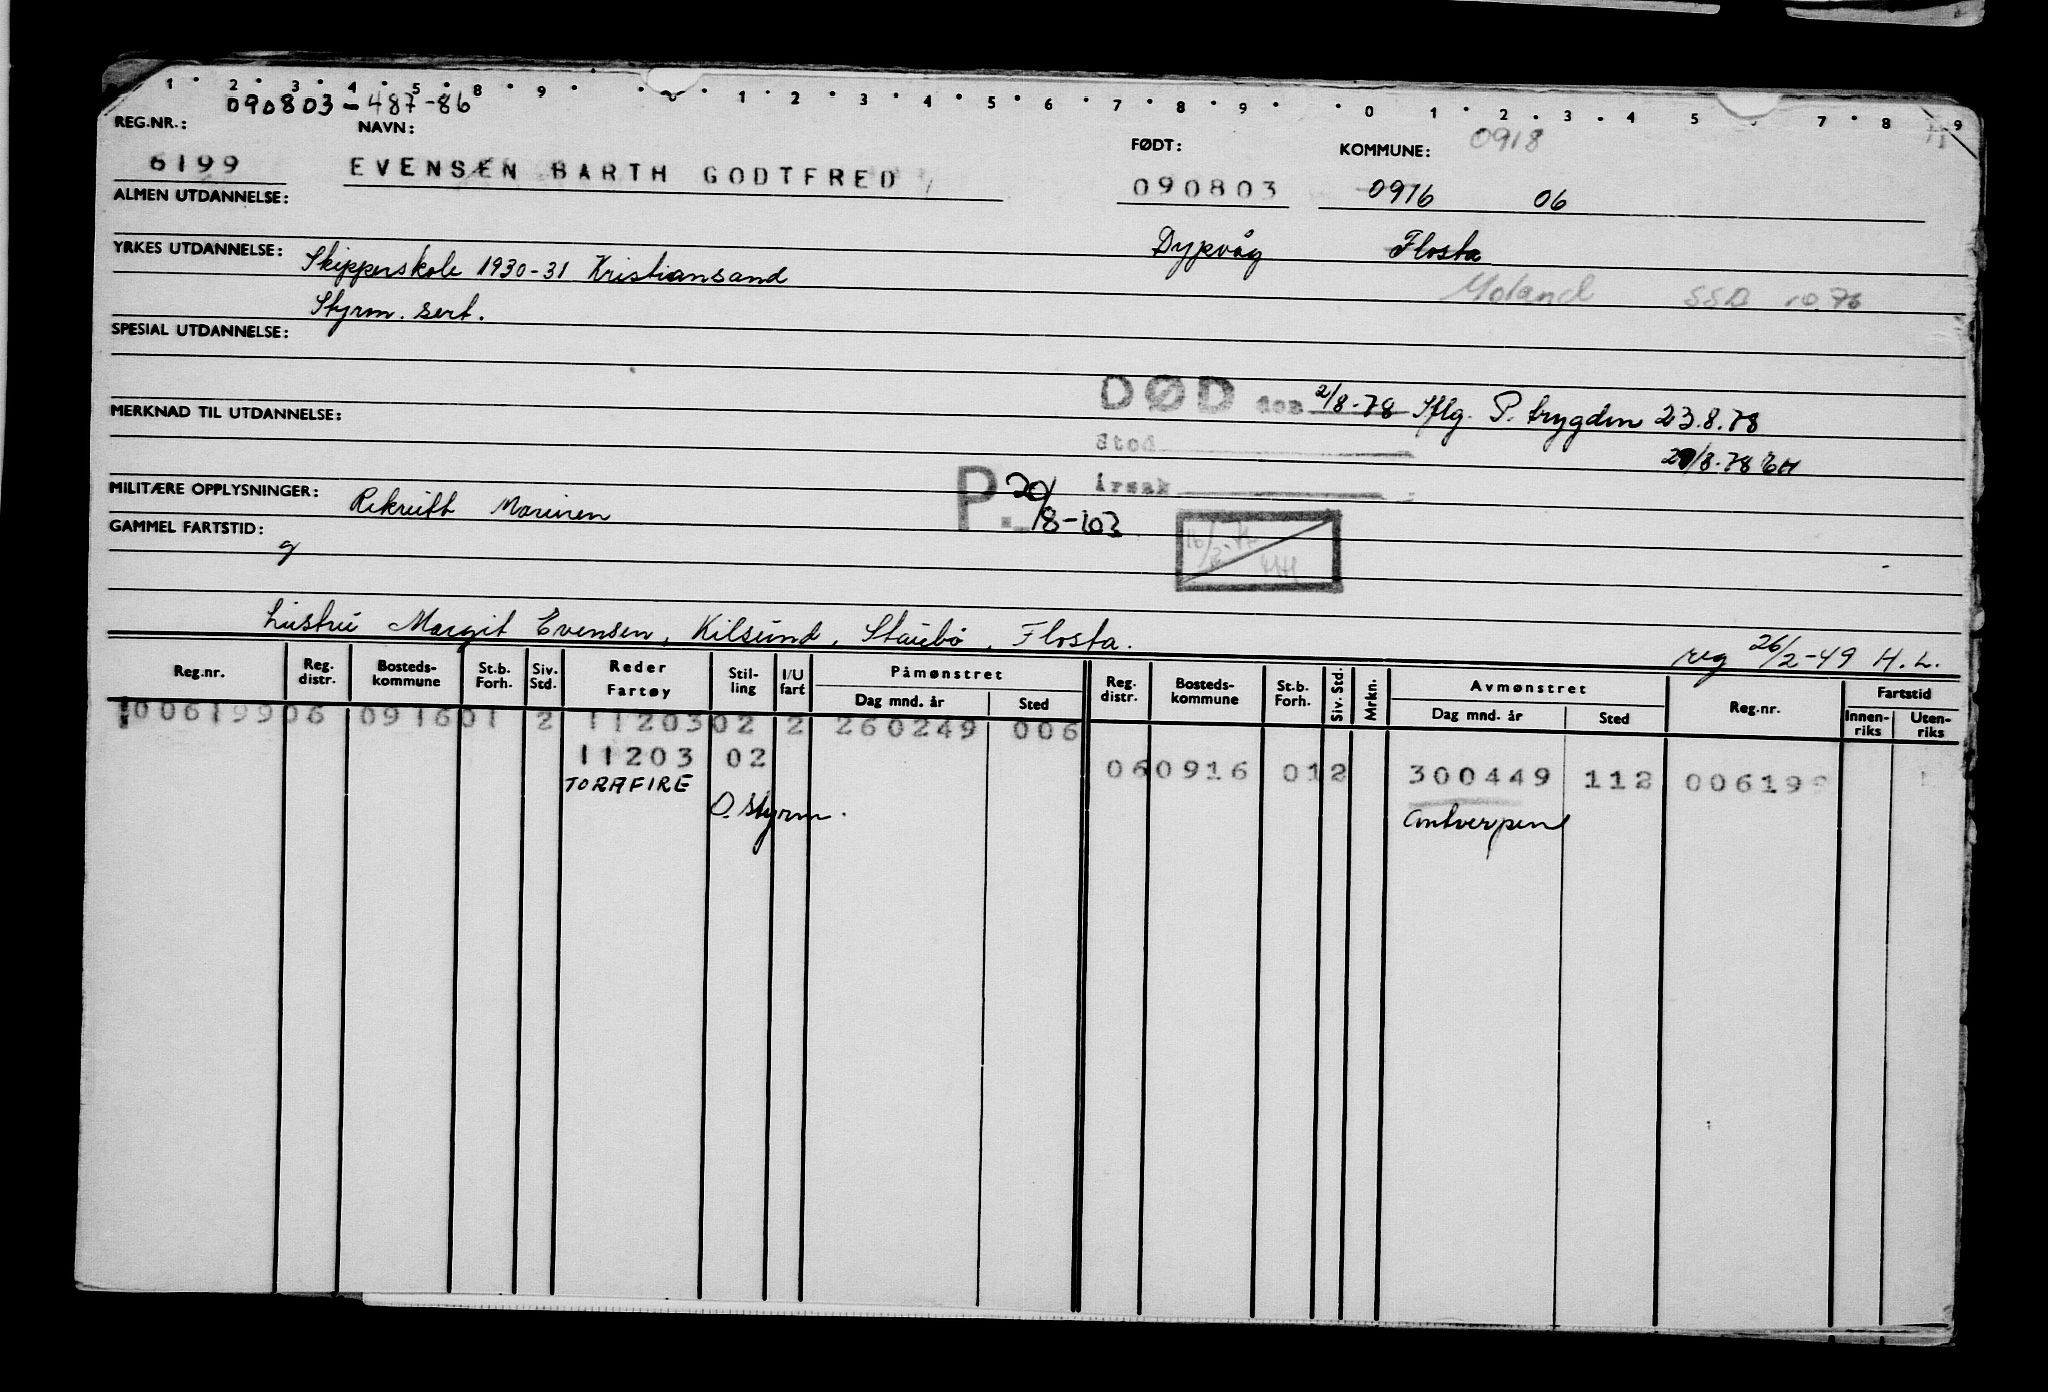 1 2 3 4 5 8 9 1 2 3 4 5 6 7 8 9 0 1 2 3 4 5 7 8 9
090803-487-86
REG.NR.: NAVN: FØDT: KOMMUNE: 0918
6199 EVENSEN BARTH GODTFRED 090803 0916 06
ALMEN UTDANNELSE:
Dypvåg Flosta
YRKES UTDANNELSE: Skipperskole 1930-31 Kristiansand
Moland SSD 10.76
Styrm. sert.
SPESIAL UTDANNELSE:
DØD den 2/8-78 Iflg. P. trygden 23.8.78
MERKNAD TIL UTDANNELSE:
Sted
29/8-78 EH
Årsak
MILITÆRE OPPLYSNINGER: Rekrutt Marinen
P. 20/8-103
GAMMEL FARTSTID:
g
Hustru Margit Evensen, Kilsund, Staubø, Flosta.
reg 26/2-49 H.L.
Reg.nr. Reg. distr. Bosteds-kommune St.b. Forh. Siv. Std. Reder Fartøy Stil-ling I/U fart Påmønstret Dag mnd. år Sted Reg. distr. Bosteds-kommune St.b. Forh. Siv. Std. Mrkn. Avmønstret Dag mnd. år Sted Reg.nr. Fartstid Innen-riks Uten-riks
1006199 06 0916 01 2 11203 02 2 260249 006
11203 02 06 0916 01 2 300449 112 006199
TORAFIRE
O. styrm. Antverpen